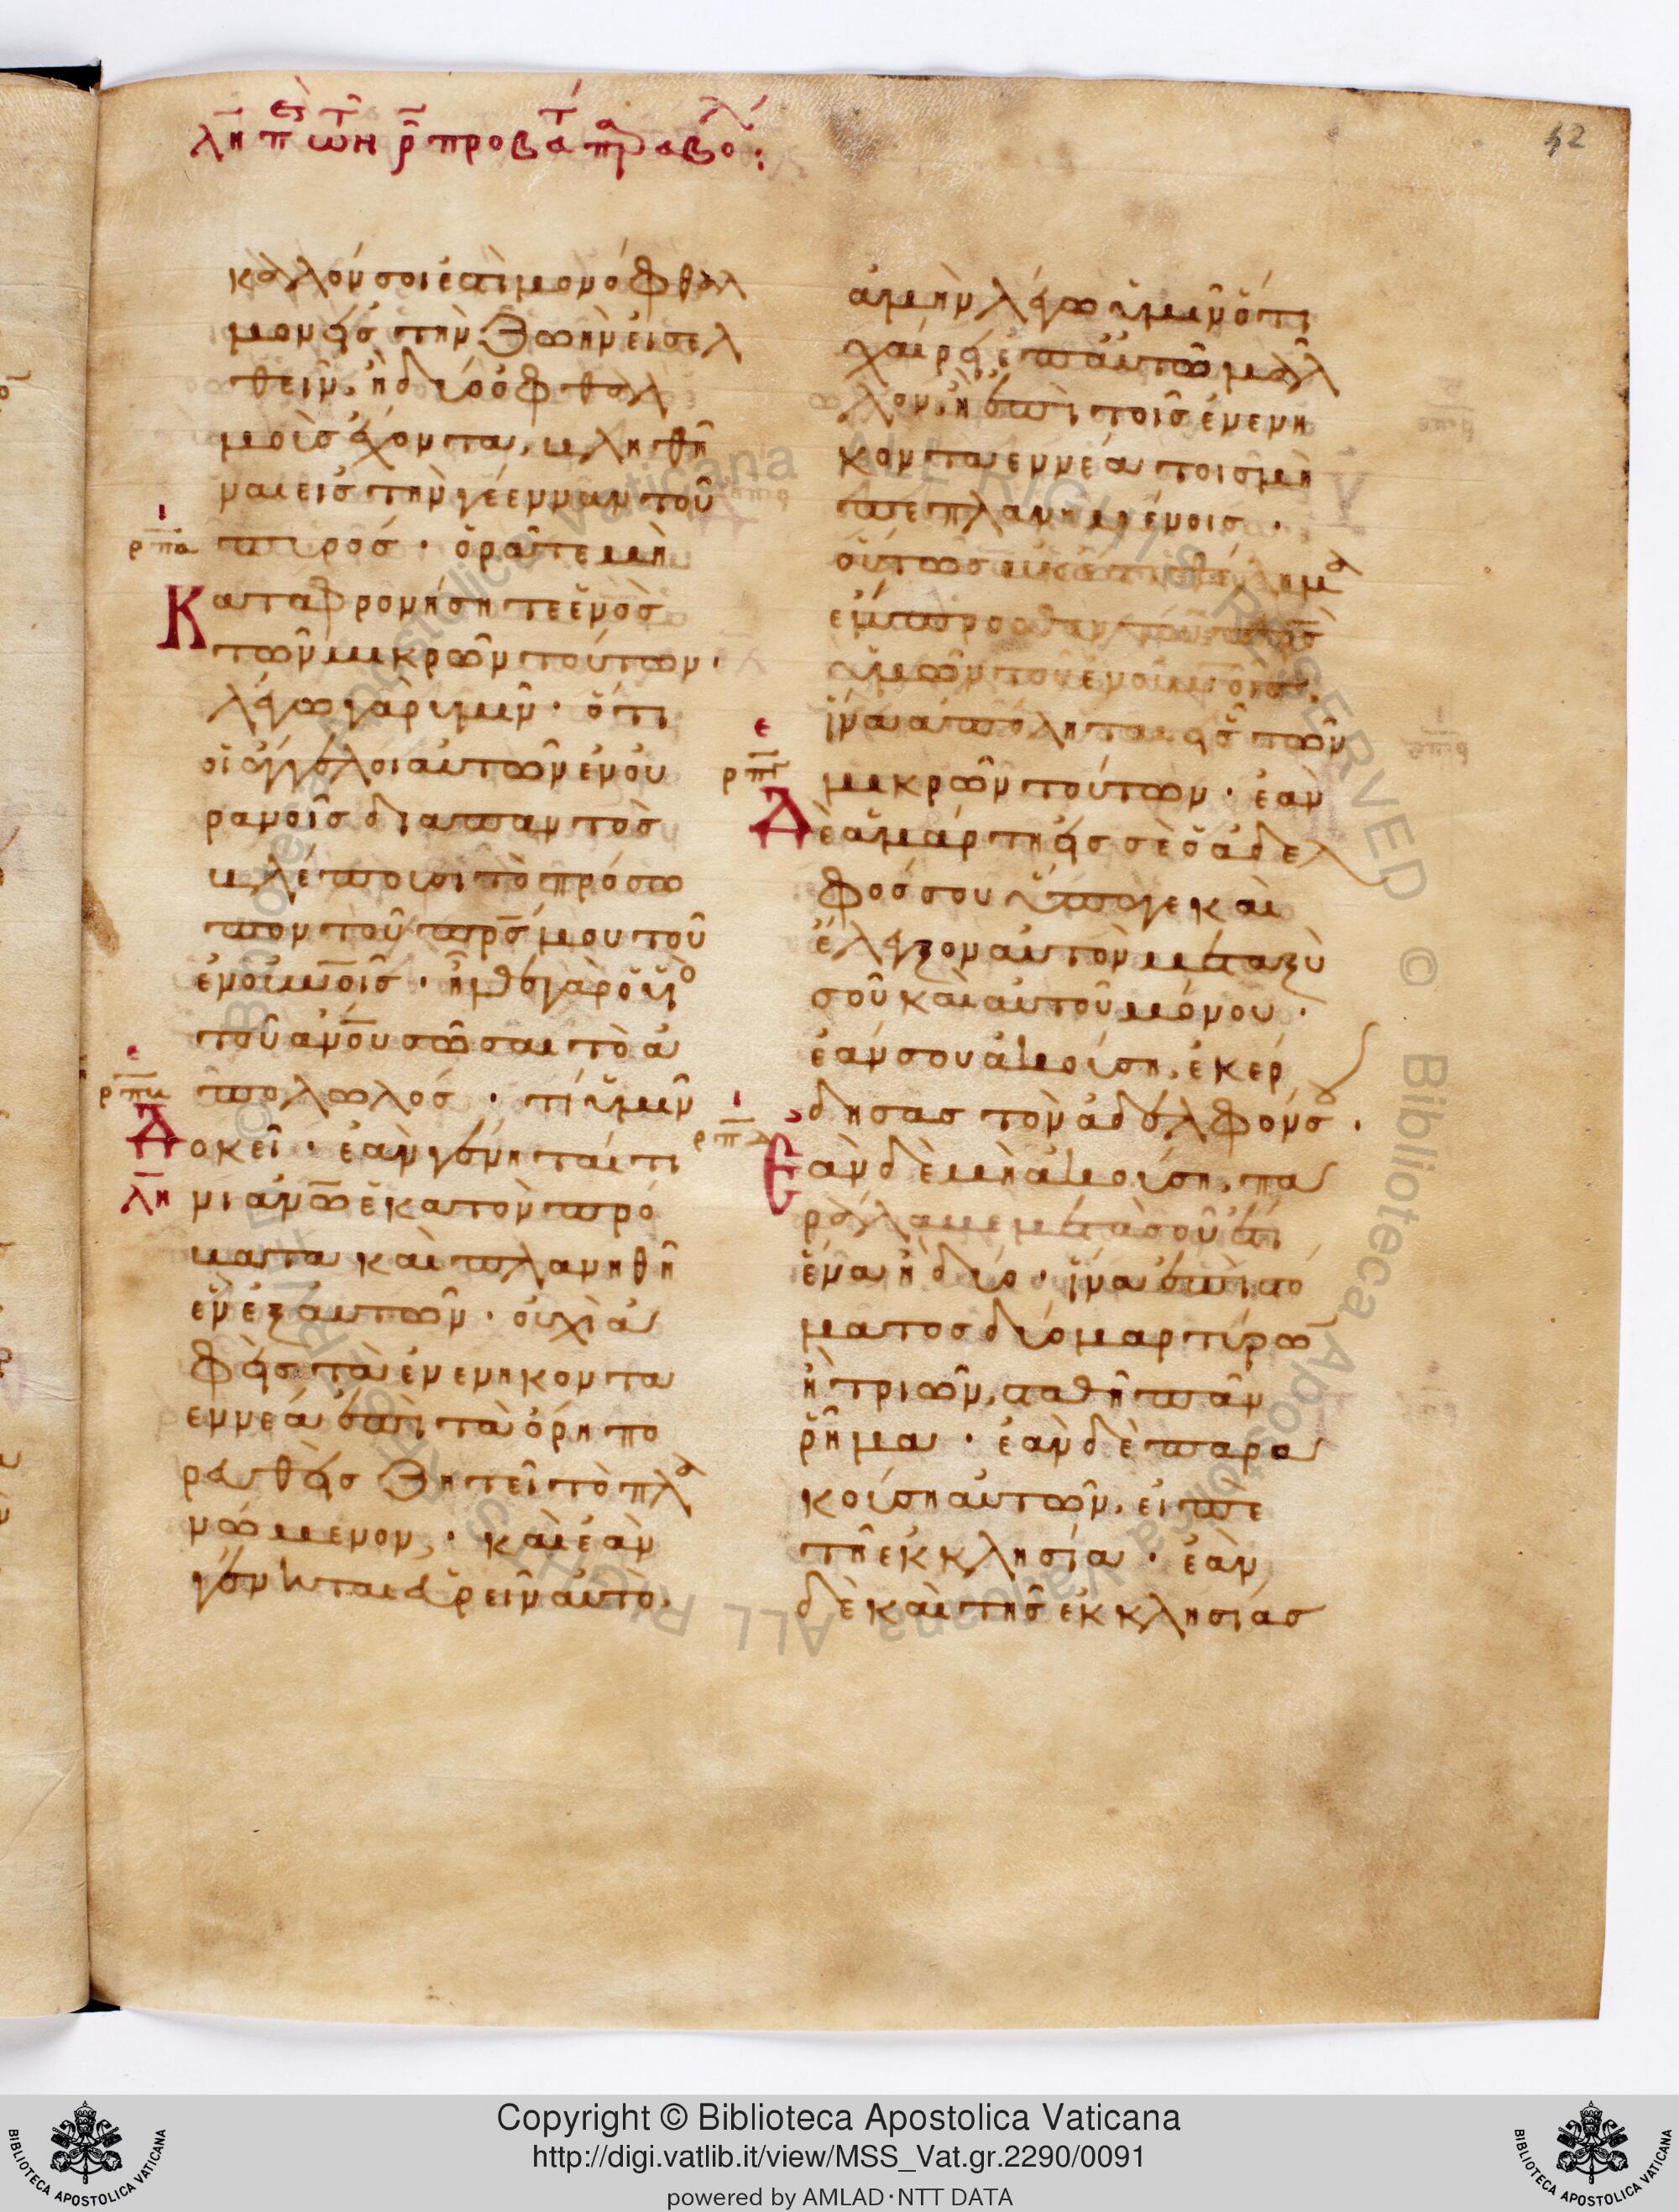 λη περὶ τῶν ρ προβάτων παραβολή:
42
καλόν σοι ἐστὶ μονόφθαλ
μον εἰς τὴν ζωὴν εἰσελ
θεῖν, ἢ δύο ὀφθαλ
μοὺς ἔχοντα, βληθῆ
ναι εἰς τὴν γέενναν τοῦ
ρπα πυρός · ὁρᾶτε μὴ
Καταφρονήσητε ἑνὸς
τῶν μικρῶν τούτων ·
λέγω γὰρ ὑμῖν · ὅτι
οἱ ἄγγελοι αὐτῶν ἐν οὐ
ρανοῖς διαπαντὸς
βλέπουσι τὸ πρόσω
πον τοῦ πρς μου τοῦ
ἐν οὐνοῖς · ἦλθε γὰρ ὁ υἱο
τοῦ ἀνου σῶσαι τὸ ἀ
ρπβ πολωλός · τί ὑμῖν
Δοκεῖ · ἐὰν γένηταί τι
λη νι ἀνω ἑκατὸν πρό
βατα καὶ πλανηθῆ
ἓν ἐξ αὐτῶν · οὐχὶ ἀ
φεὶς τὰ ἐνενηκοντα
εννέα ἐπὶ τὰ ὄρη πο
ρευθεὶς ζητεῖ τὸ πλα
νώμενον · καὶ ἐὰν
γένηται εὑρεῖν αὐτὸ,
ἀμὴν λέγω ὑμῖν ὅτι
χαίρει ἐπ αὐτῶ μᾶλ
λον, ἢ ἐπὶ τοῖς ἐνενη
κονταεννέα τοῖς μὴ
πεπλανημένοις ·
οὕτως οὐκ ἔστι θέλημα
ἔμπροσθεν τοῦ πρς
ὑμῶν τοῦ ἐν οὐνοις,
ἵνα ἀπόληται εἷς τῶν
ρπγ μικρῶν τούτων · ἐὰν
Δὲ ἁμάρτη εἰς σὲ ὁ ἀδελ
φός σου ὕπαγε καὶ
ἔλεγξον αὐτὸν μεταξὺ
σοῦ καὶ αὐτοῦ μόνου ·
ἐάν σου ἀκούση, ἐκέρ
δησας τὸν ἀδελφόν σου ·
ρπδ Εὰν δὲ μὴ ἀκούση, πα
ράλαβε μετὰ σοῦ ἔτι
ἕνα ἢ δύο · ἵνα ἐπὶ στό
ματος δύο μαρτύρω
ἢ τριῶν, σταθῆ πᾶν
ῥῆμα · ἐὰν δὲ παρα
κούση αὐτῶν, εἰπὲ
τῆ ἐκκλησία · ἐὰν
δὲ καὶ τῆς ἐκκλησίας
Copyright © Biblioteca Apostolica Vaticana
http://digi.vatlib.it/view/MSS_Vat.gr.2290/0091
powered by AMLAD·NTT DATA
BIBLIOTECA APOSTOLICA VATICANA
BIBLIOTECA APOSTOLICA VATICANA